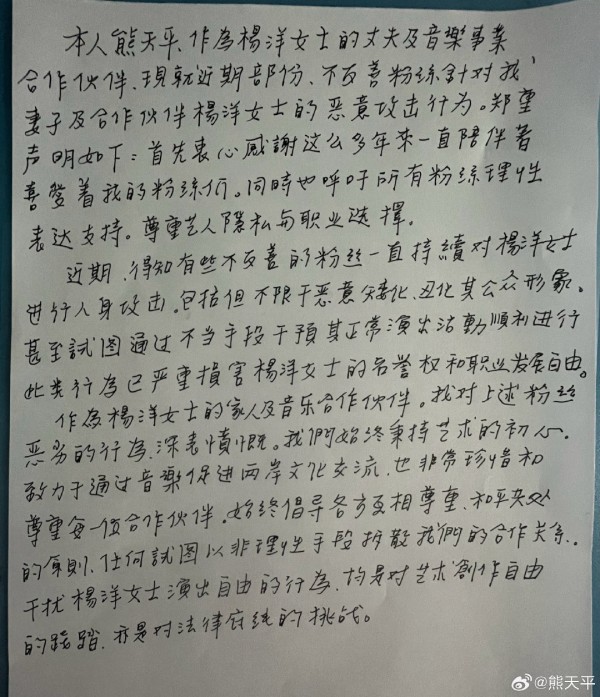 本人熊天平、作為楊洋女士的丈夫及音樂事業
合作伙伴、現就近期部份、不友善粉絲針对我
妻子及合作伙伴楊洋女士的恶意攻击行为。郑重
声明如下：首先衷心感謝这么多年来一直陪伴著
喜愛着我的粉絲们。同時也呼吁所有粉絲理性
表达支持。尊重艺人隱私与职业选擇。
近期、得知有些不友善的粉丝一直持續对楊洋女士
进行人身攻击。包括但不限于恶意矮化、丑化其公众形象。
甚至試图通过不当手段干預其正常演出活動順利进行
此类行為已严重損害楊洋女士的名誉权和职业发展自由。
作為楊洋女士的家人及音乐合作伙伴。我对上述粉丝
恶劣的行為、深表憤慨。我們始终秉持艺术的初心.
致力于通过音樂促进两岸文化交流、也非常珍惜和
尊重每一位合作伙伴、始终倡导各方互相尊重、和平共处
的原則、任何試图以非理性手段拆散我們的合作关系、
干扰楊洋女士演出自由的行為、均是对艺术創作自由
的践踏、亦是对法律的挑战。
@熊天平